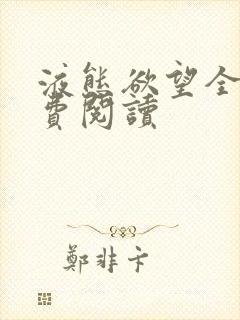 液態欲望全
費閱讀
鄭非卞